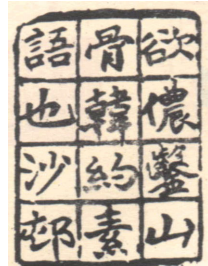 欲儂鑿山
骨韓約素
語也沙邨